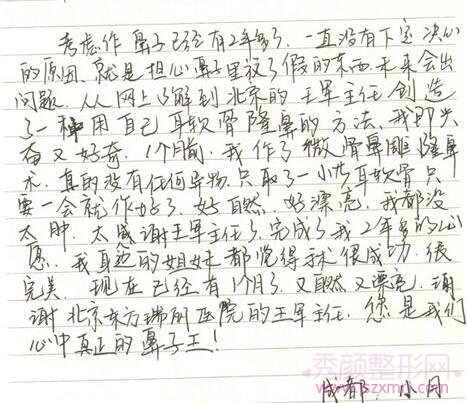 考虑作鼻子已经有2年多了.一直没有下定决心
的原因.就是担心鼻子里放了假的东西.未来会出
问题.从网上了解到北京的王军主任创造
了一种用自己耳软骨隆鼻的方法.我即兴
奋又好奇.1个月前.我作了微骨鼻雕隆鼻
术.真的没有任何异物.只取了一小点耳软骨只
要一会就作好了.好自然.好漂亮.我都没
太肿.太感谢王军主任了.完成了我2年多的心
愿.我身边的姐妹都觉得手术很成功.很
完美.现在已经有1个月了.又自然又漂亮.谢
谢北京东方瑞丽医院的王军主任.您是我们
心中真正的鼻子王!
成都:小月
秀颜整形网